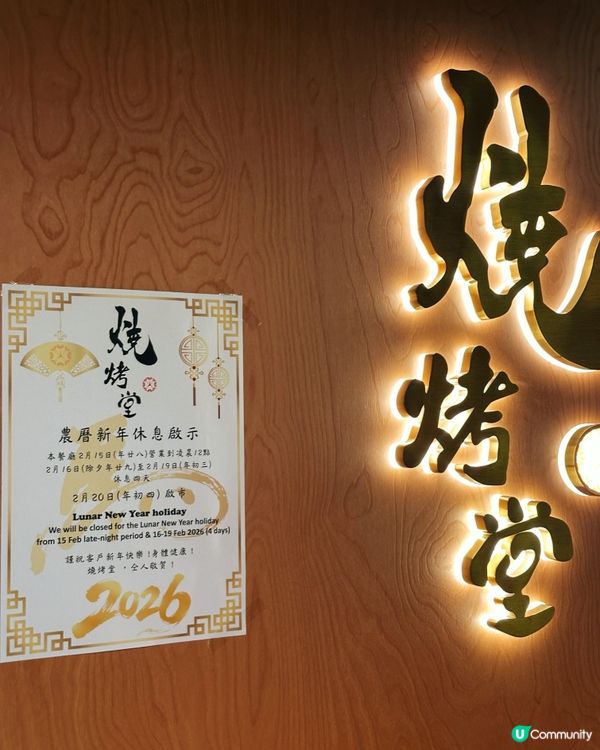 燒
烤
堂
農曆新年休息啟示
本餐廳2月15日(年廿八)營業到凌晨12點
2月16日(除夕年廿九)至2月19日(年初三)
休息四天
2月20日(年初四)啟市
Lunar New Year holiday
We will be closed for the Lunar New Year holiday
from 15 Feb late-night period & 16-19 Feb 2026 (4 days)
謹祝客戶新年快樂!身體健康!
燒烤堂,仝人敬賀!
2026
燒
烤
堂
U Community